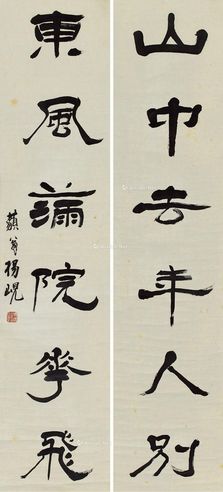 山中去年人別
東風滿院花飛
藐翁楊峴